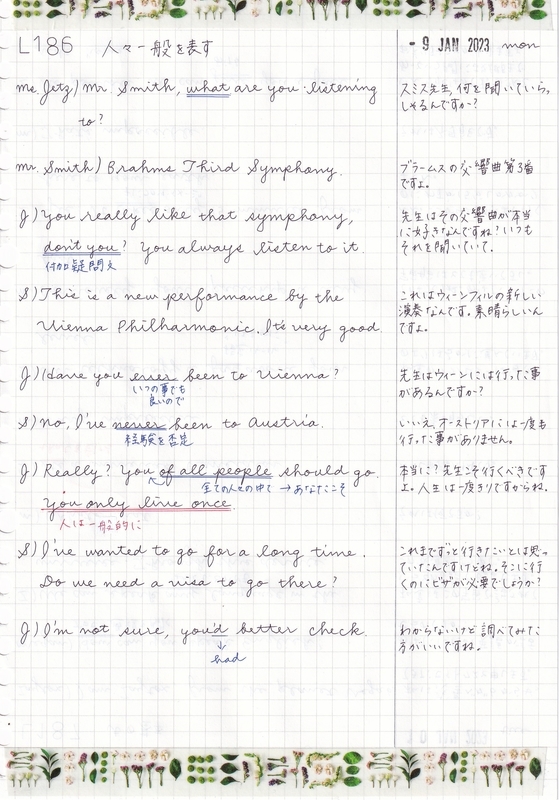 L186 人々一般を表す
- 9 JAN 2023 mon
Ms. Jetz) Mr Smith, what are you listening
to?
スミス先生, 何を聞いていらっ
しゃるんですか?
Mr. Smith) Brahms Third Symphony.
ブラームスの交響曲第3番
ですよ。
J) You really like that symphony,
don't you? You always listen to it.
付加疑問文
先生はその交響曲が本当
に好きなんですね?いつも
それを聞いていて。
S) This is a new performance by the
Vienna Philharmonic. It's very good.
これはウィーンフィルの新しい
演奏なんです。素晴らしいん
ですよ。
J) Have you ever been to Vienna?
いつの事でも
良いので
先生はウィーンには行った事
があるんですか?
S) No, I've never been to Austria.
経験を否定
いいえ、オーストリアには一度も
行った事がありません。
J) Really? You of all people should go.
全ての人々の中で → あなたこそ
You only live once.
人は一般的に
本当に?先生こそ行くべきです
よ。人生は一度きりですからね。
S) I've wanted to go for a long time.
Do we need a visa to go there?
これまでずっと行きたいとは思っ
ていたんですけどね。そこに行
くのにビザが必要でしょうか?
J) I'm not sure, you'd better check.
↓
had
わからないけど調べてみた
方がいいですね。